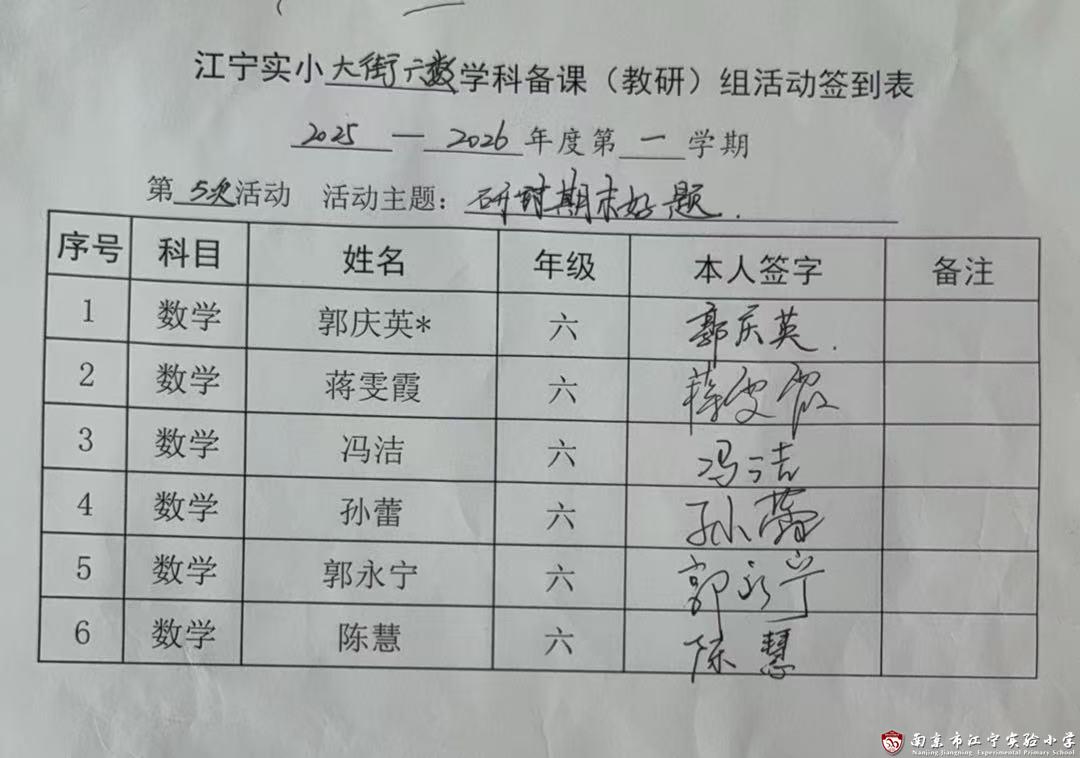 江宁实小大街六数学科备课（教研）组活动签到表
2025 — 2026 年度第 一 学期
第 5次 活动 活动主题：研讨期末好题.
序号 科目 姓名 年级 本人签字 备注
1 数学 郭庆英* 六 郭庆英.
2 数学 蒋雯霞 六 蒋雯霞
3 数学 冯洁 六 冯洁
4 数学 孙蕾 六 孙蕾
5 数学 郭永宁 六 郭永宁
6 数学 陈慧 六 陈慧
南京市江宁实验小学
Nanjing Jiangning Experimental Primary School